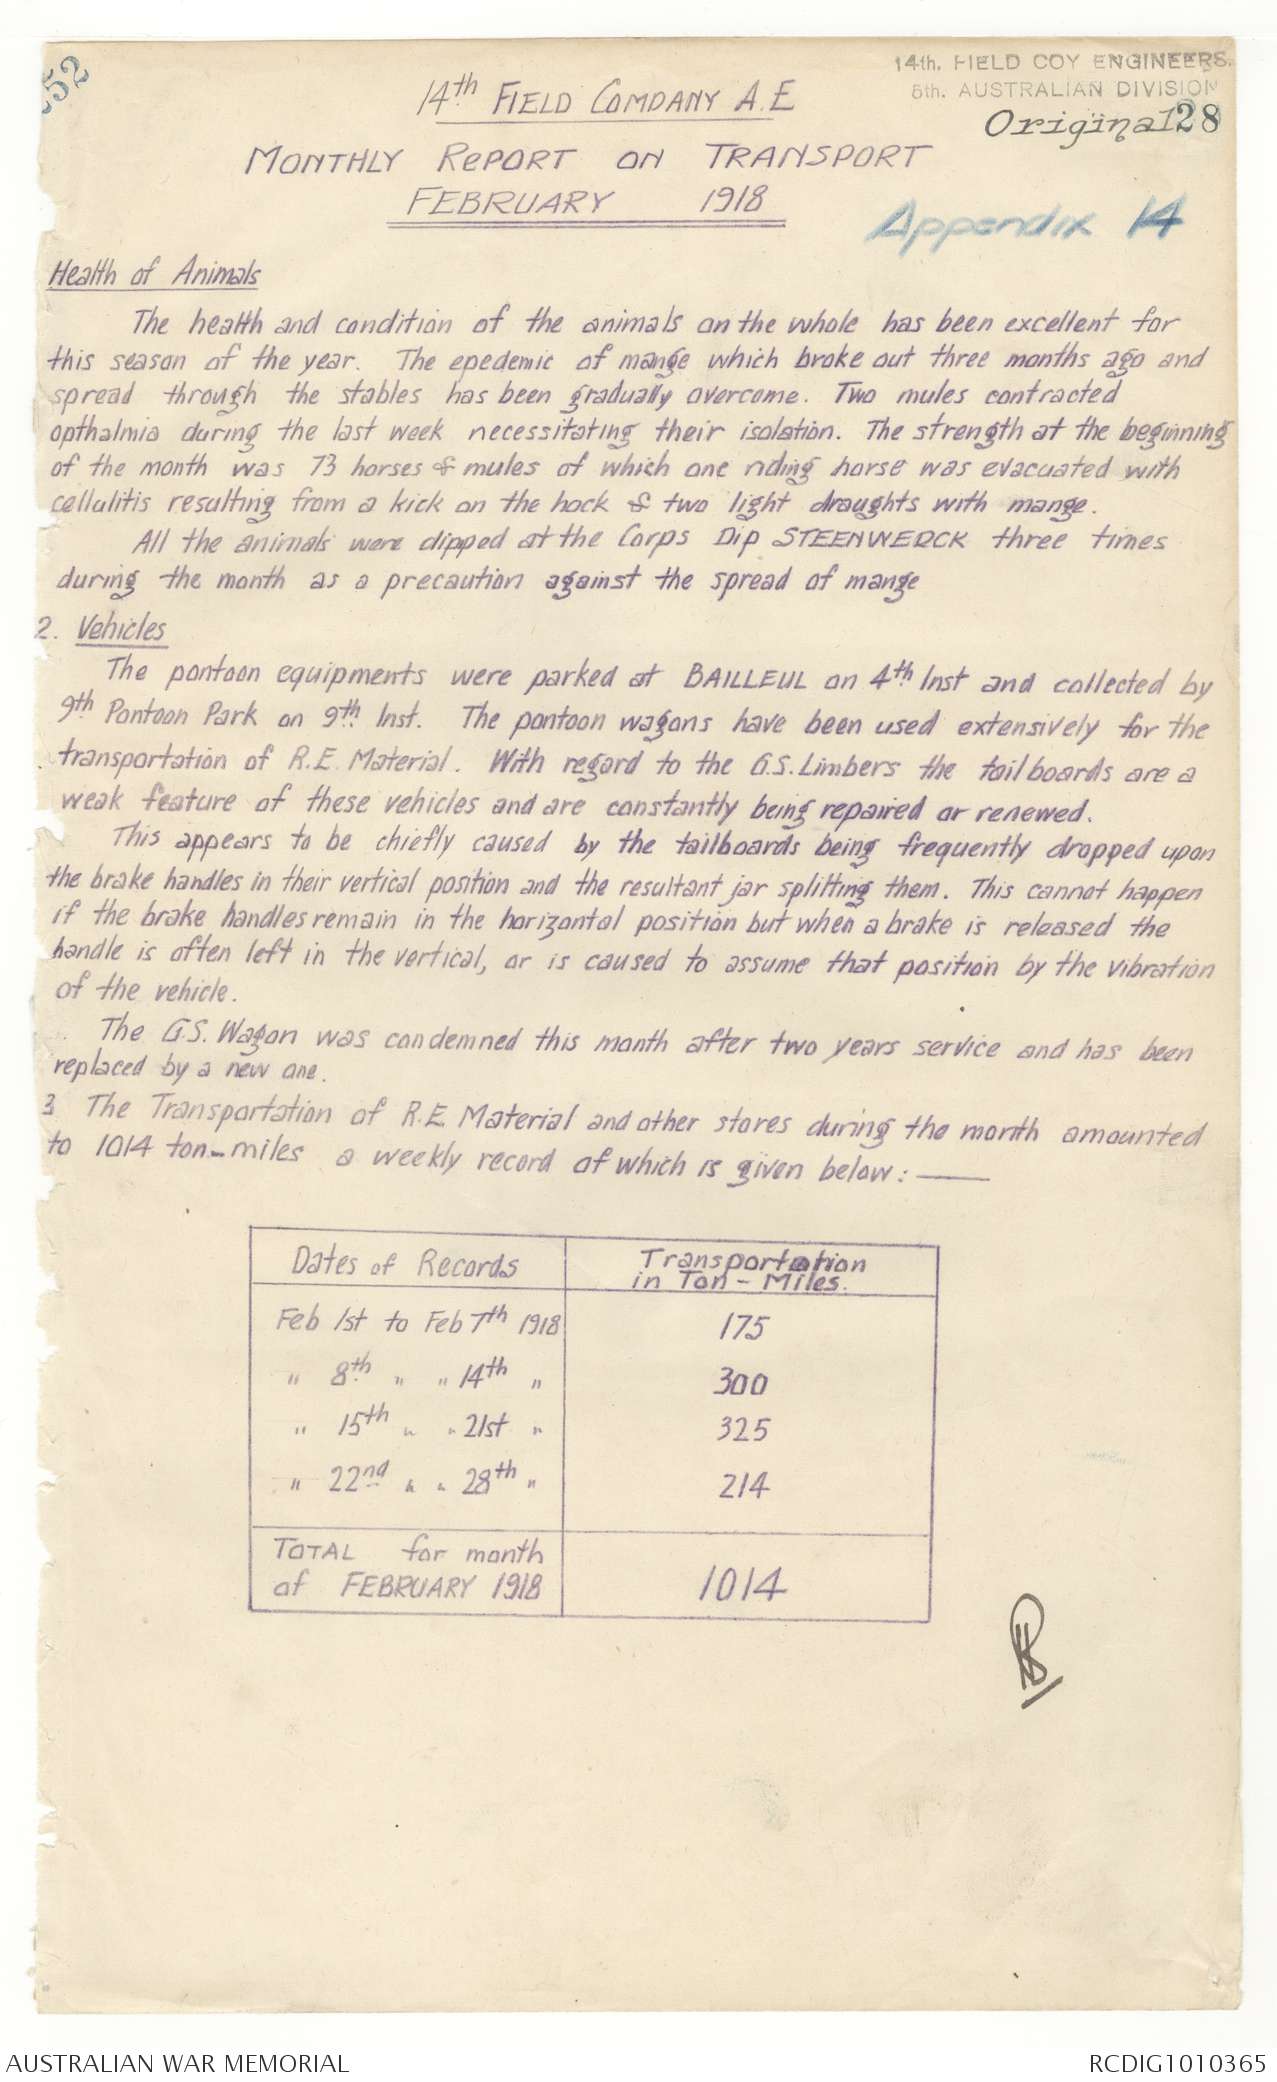 252
14th. FIELD COY ENGINEERS.
5th. AUSTRALIAN DIVISION
Original 28
14th FIELD COMPANY A.E
MONTHLY REPORT ON TRANSPORT
FEBRUARY 1918
Appendix 14
Health of Animals
The health and condition of the animals on the whole has been excellent for
this season of the year. The epedemic of mange which broke out three months ago and
spread through the stables has been gradually overcome. Two mules contracted
opthalmia during the last week necessitating their isolation. The strength at the beginning
of the month was 73 horses & mules of which one riding horse was evacuated with
cellulitis resulting from a kick on the hock & two light draughts with mange.
All the animals were dipped at the Corps Dip STEENWERCK three times
during the month as a precaution against the spread of mange
2. Vehicles
The pontoon equipments were parked at BAILLEUL on 4th Inst and collected by
9th Pontoon Park on 9th Inst. The pontoon wagons have been used extensively for the
transportation of R.E. Material. With regard to the G.S. Limbers the tailboards are a
weak feature of these vehicles and are constantly being repaired or renewed.
This appears to be chiefly caused by the tailboards being frequently dropped upon
the brake handles in their vertical position and the resultant jar splitting them. This cannot happen
if the brake handles remain in the horizontal position but when a brake is released the
handle is often left in the vertical, or is caused to assume that position by the vibration
of the vehicle.
The G.S. Wagon was condemned this month after two years service and has been
replaced by a new one.
3 The Transportation of R.E. Material and other stores during the month amounted
to 1014 ton-miles a weekly record of which is given below: —
Dates of Records Transportation
in Ton - Miles.
Feb 1st to Feb 7th 1918 175
" 8th " " 14th " 300
" 15th " " 21st " 325
" 22nd " " 28th " 214
TOTAL for month
of FEBRUARY 1918 1014
AUSTRALIAN WAR MEMORIAL RCDIG1010365